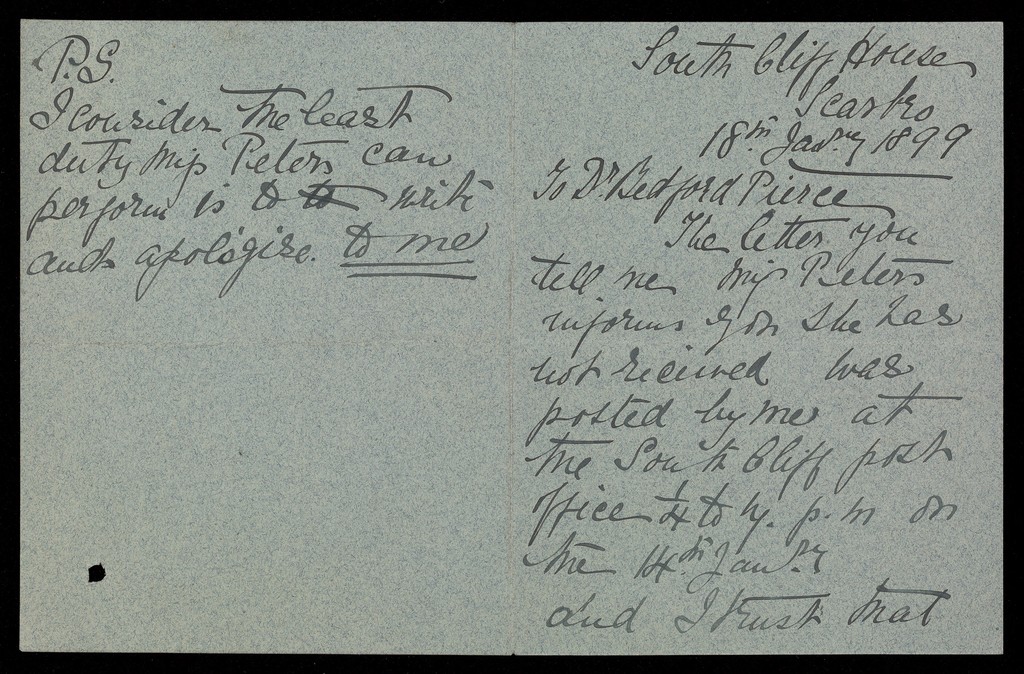 P.S.
I consider the least
duty Miss Peters can
perform is to to write
and apologise. to me
South Cliff House
Scarbro
18th Janry 1899
To Dr Bedford Pierce
The letter you
tell me Miss Peters
informs you she has
not received was
posted by me at
the South Cliff post
office ¼ to 7. p.m on
the 14th Janry
and I trust that